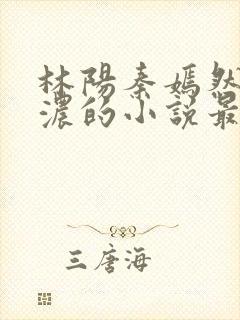 林陽秦嫣然
濃的小說最
三唐海